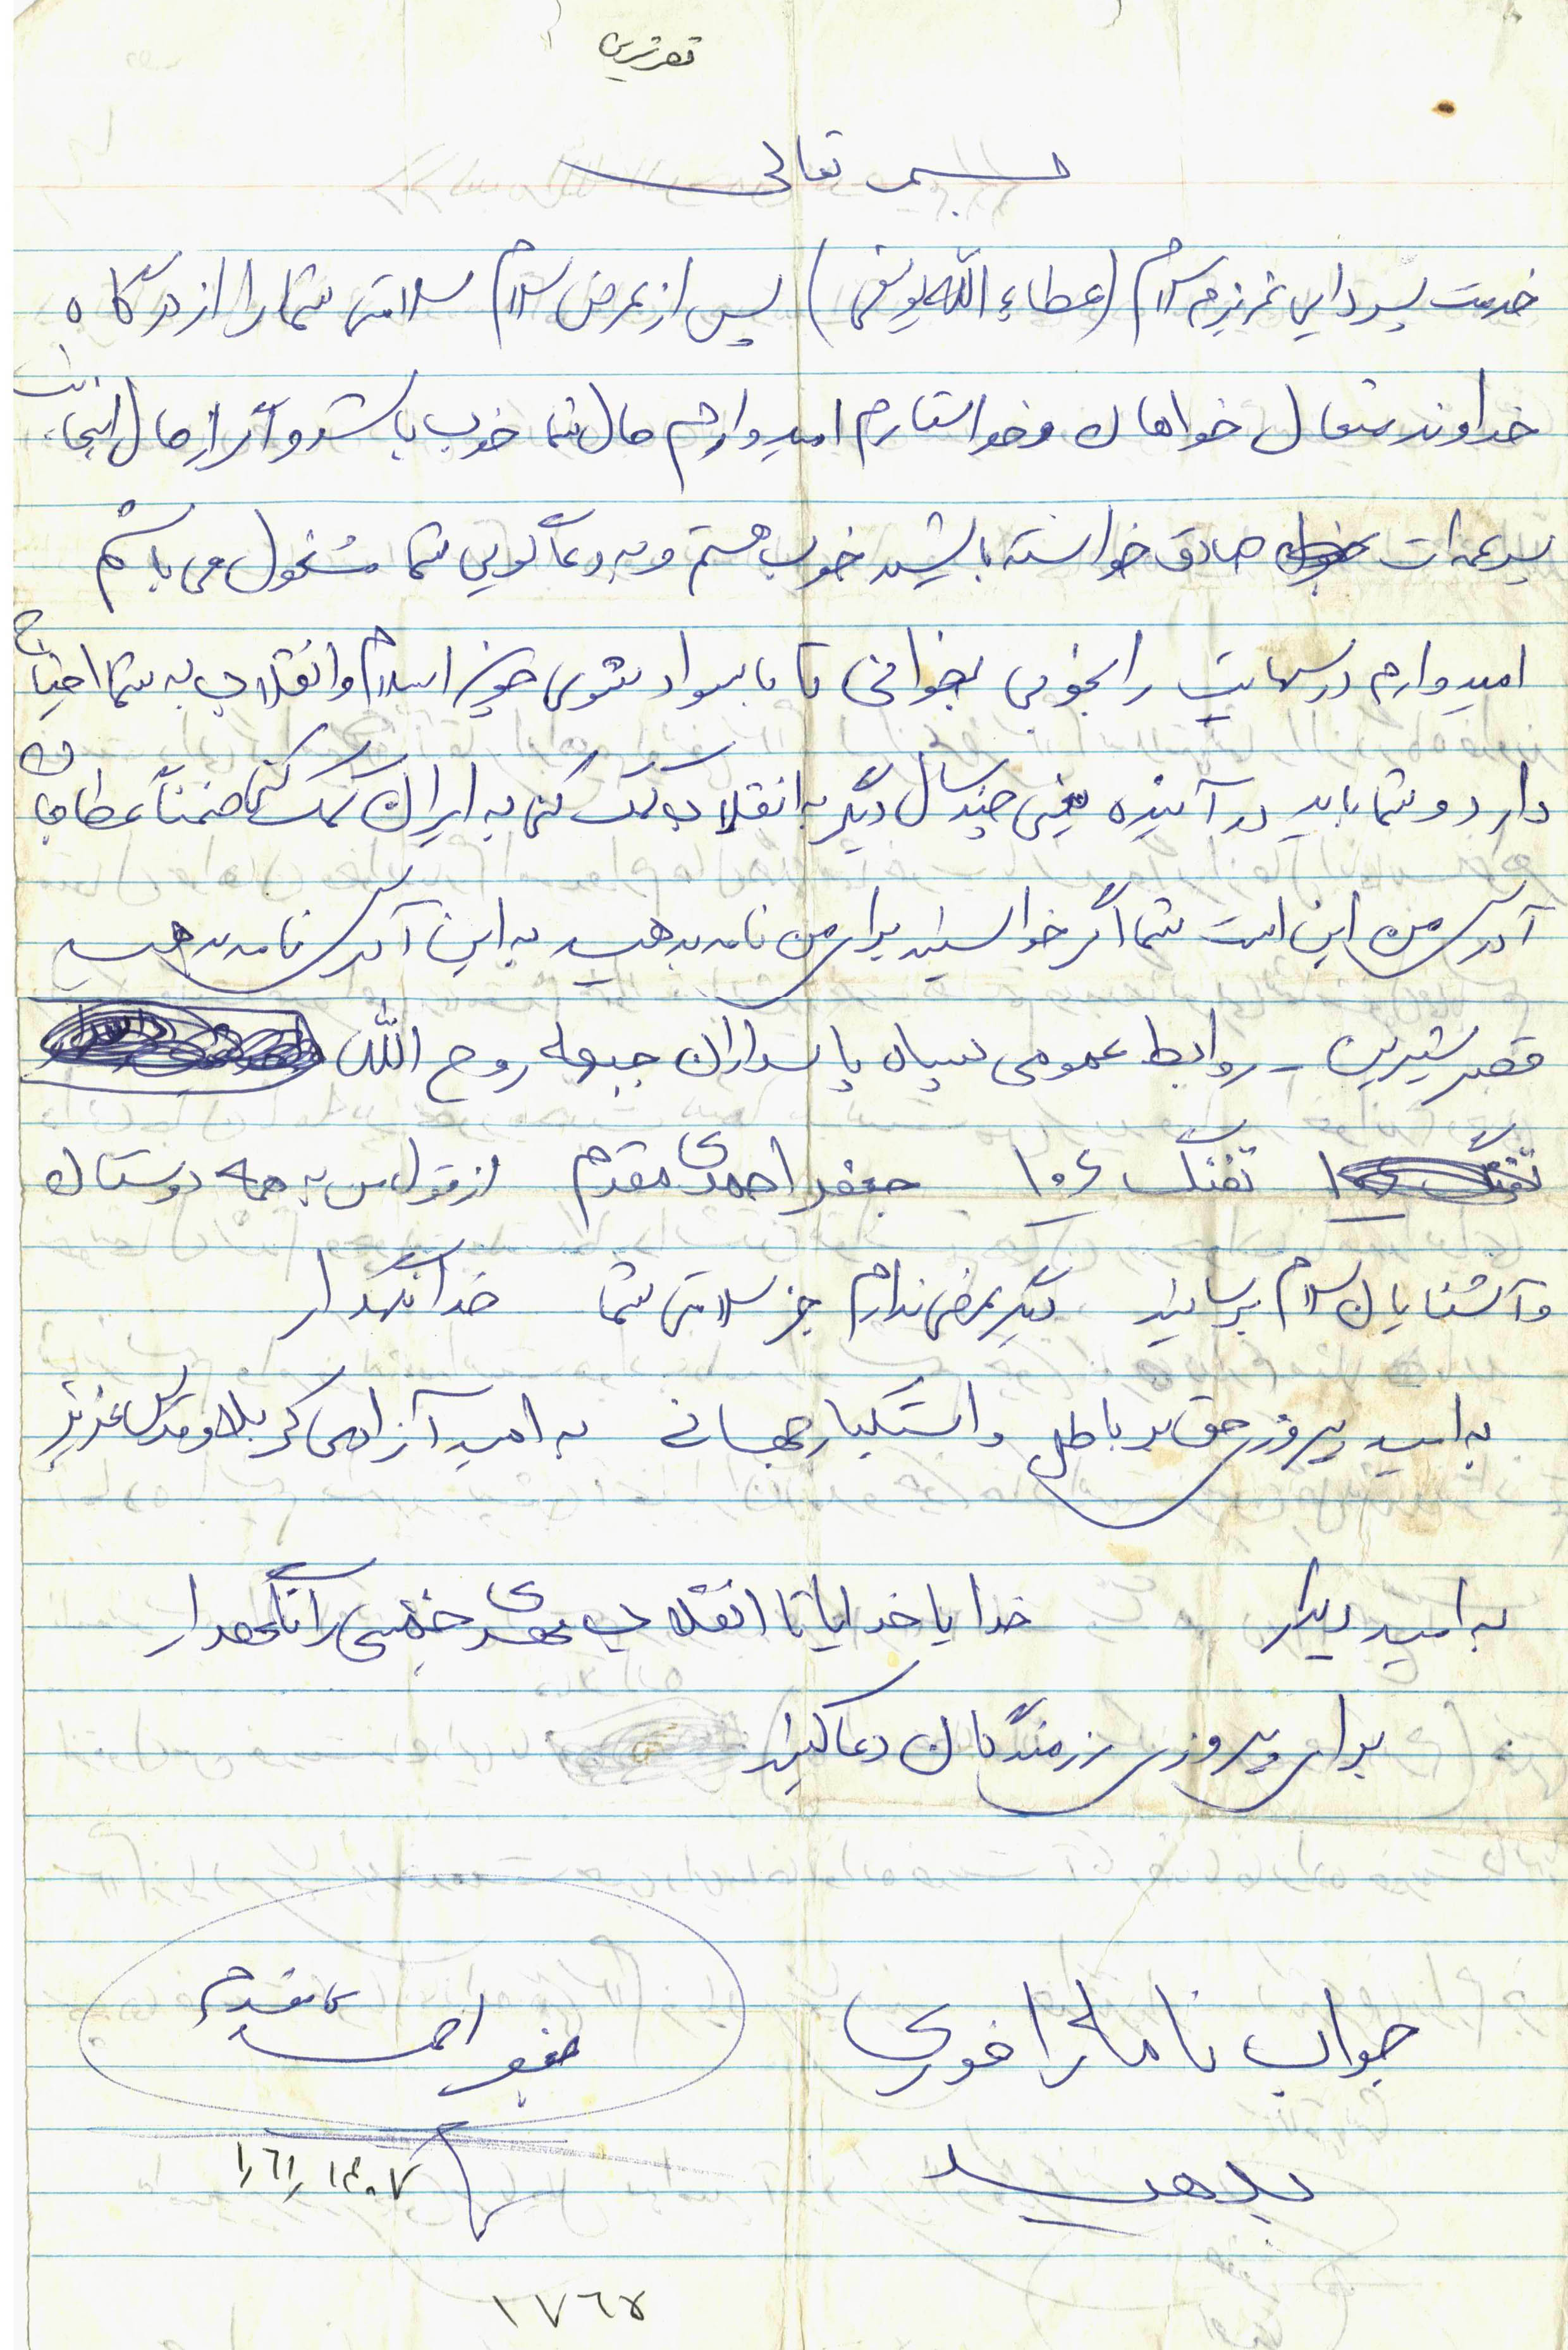 بسمه تعالی
خدمت پسر دایی عزیزم سلام (عطاء الله یوسفی) پس از عرض سلام سلامتی شما را از درگاه
خداوند متعال خواهان و خواستارم امیدوارم حال شما خوب باشد و اگر از حال اینجانب
پسر عمه ات صادق خواسته باشید خوب هستم و به دعاگویی شما مشغول می باشم
امیدوارم درسهایت را بخوبی بخوانی تا با سواد شوی چون اسلام و انقلاب به شما احتیاج
دارد و شما باید در آینده یعنی چند سال دیگر به انقلاب کمک کنی به ایران کمک کنی ضمناً عطا جان
آدرس من این است شما اگر خواستید برای من نامه بدهید به این آدرس نامه بدهید
قصر شیرین - روابط عمومی سپاه پاسداران جبهه روح الله
تفنگ ۱۰۶ جعفر احمدی مقدم از قول من به همه دوستان
و آشنایان سلام برسانید دیگر عرضی ندارم جز سلامتی شما خدانگهدار
به امید پیروزی حق بر باطل و استکبار جهانی به امید آزادی کربلا و قدس عزیز
به امید دیدار خدایا خدایا تا انقلاب مهدی خمینی را نگهدار
برای پیروزی رزمندگان دعا کنید
جواب نامه را فوری
جعفر احمدی مقدم
بدهید
۱۷۶۴